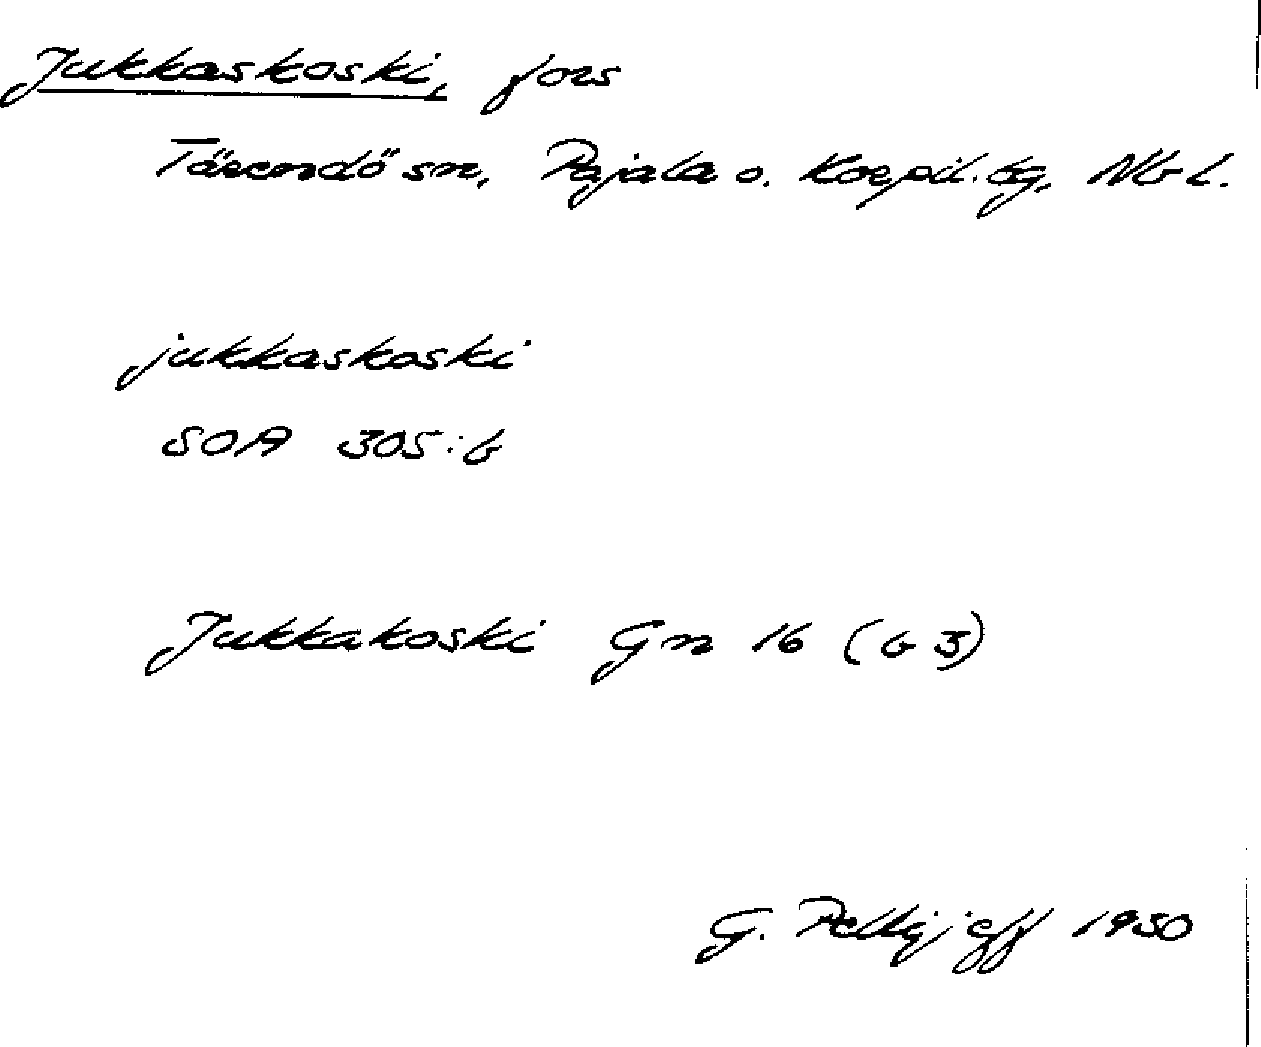 Jukkaskoski, fors
Tärendö sn, Pajala o. Korpil. tg, Nb l.
jukkaskoski
SOA 305:6
Jukkakoski Gn 16 (b 3)
G. Pellijeff 1950